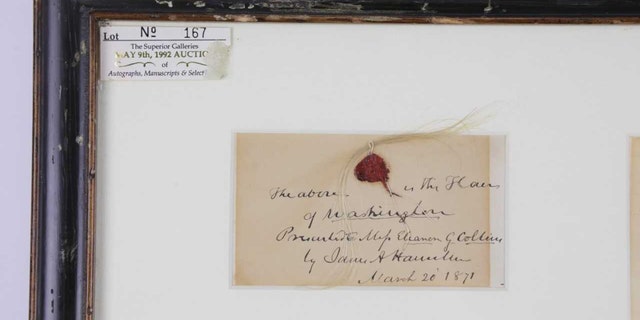 Lot No 167
The Superior Galleries
MAY 9th, 1992 AUCTION
of
Autographs, Manuscripts & Select
The above is the Hair
of Washington
Presented to Miss Eleanor G Collins
by James A Hamilton
March 20 1871